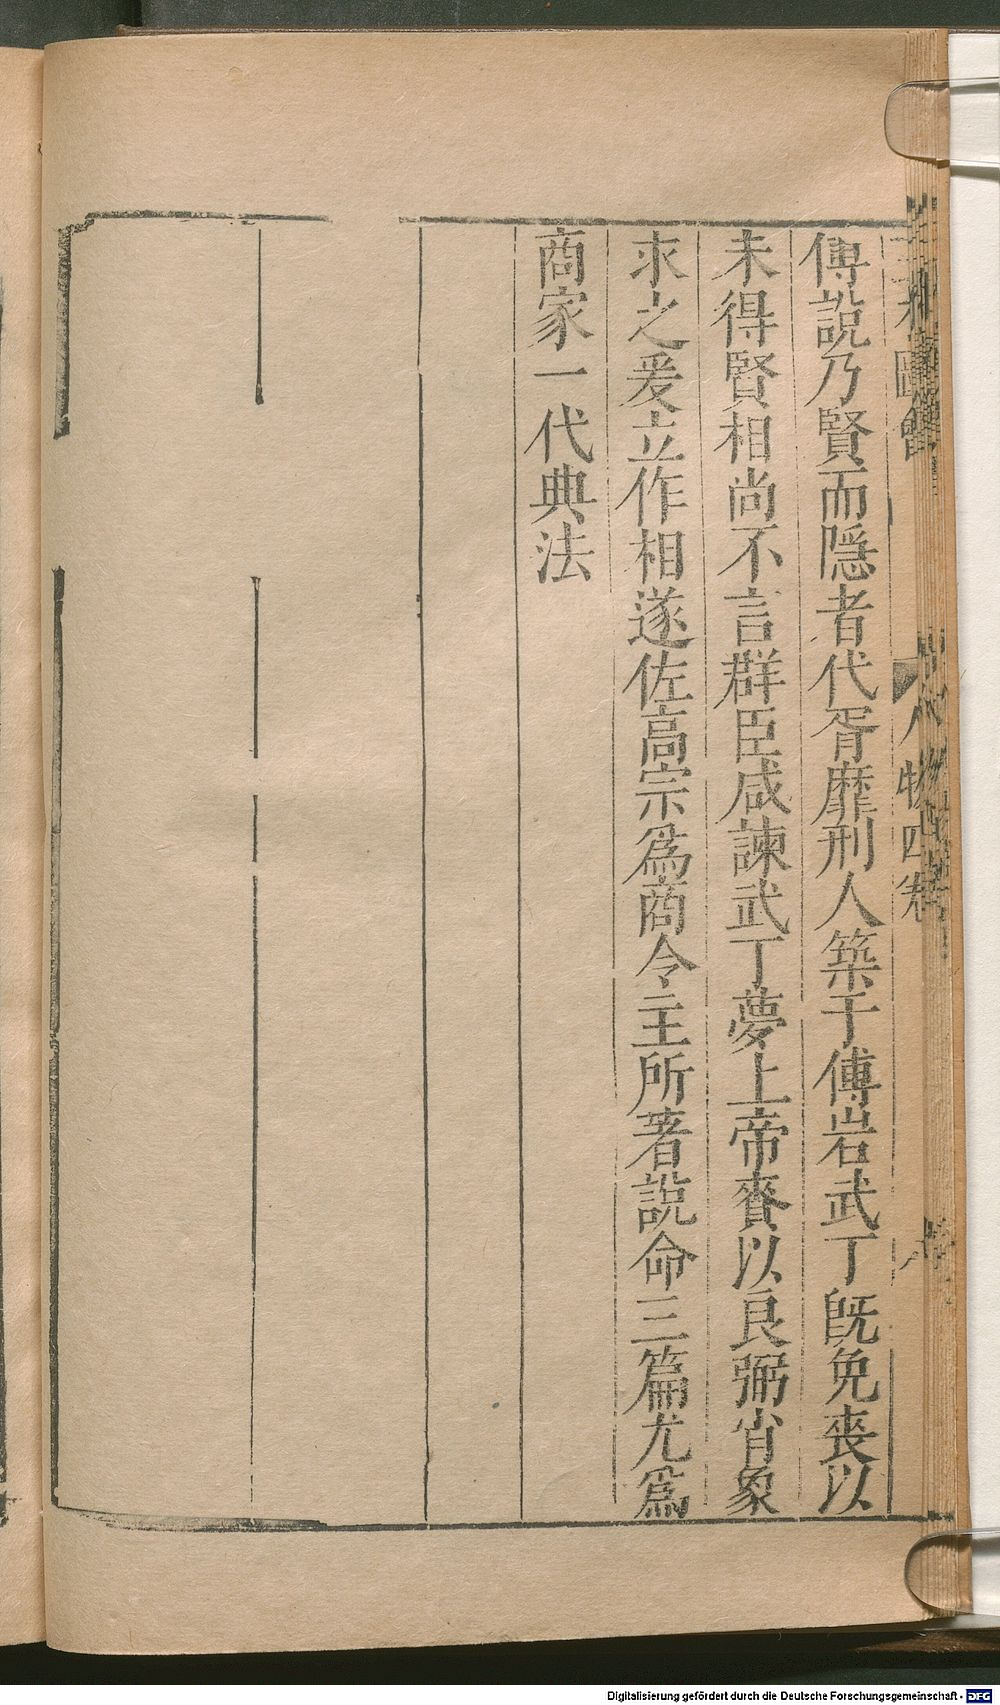 傅說乃賢而隱者代胥靡刑人築于傅岩武丁旣免喪以
未得賢相尚不言群臣咸諫武丁夢上帝賚以良弼肖象
求之爰立作相遂佐高宗爲商令主所著說命三篇尤爲
商家一代典法
人物四卷
Digitalisierung gefördert durch die Deutsche Forschungsgemeinschaft - DFG